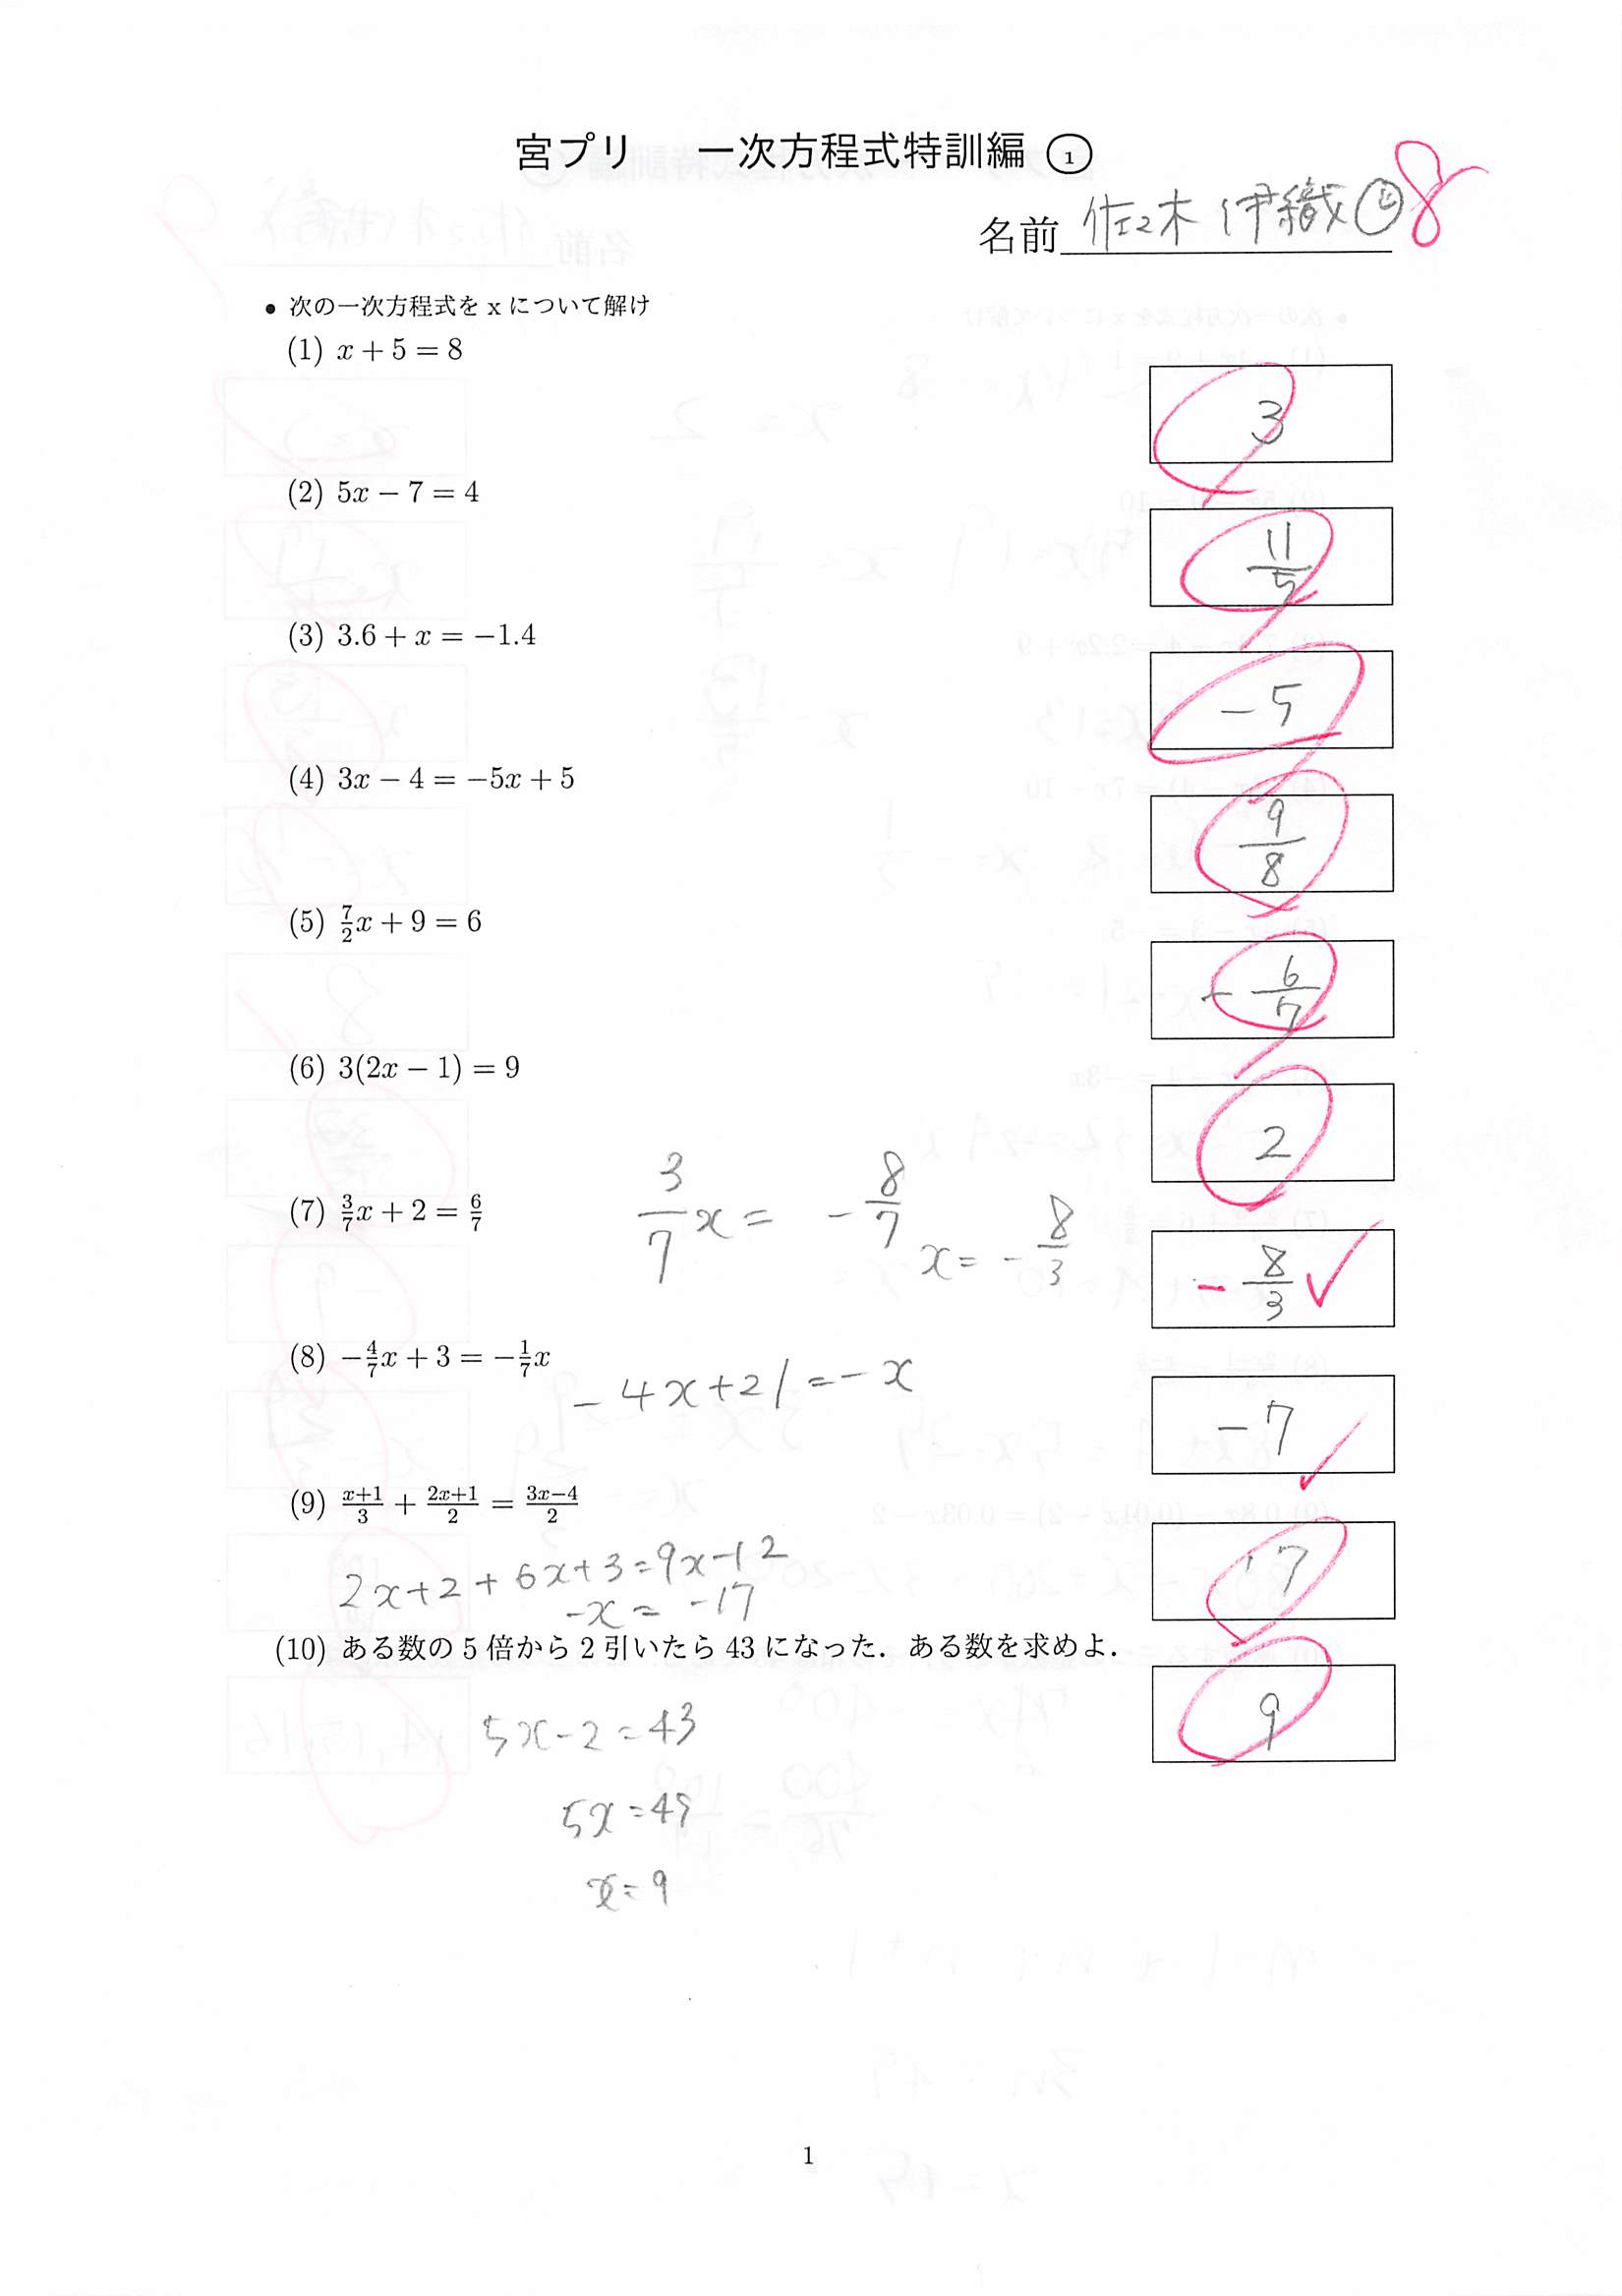 宮プリ 一次方程式特訓編 ①
8
名前 佐々木 伊織
• 次の一次方程式を x について解け
(1) x + 5 = 8
3
(2) 5x − 7 = 4
11/5
(3) 3.6 + x = −1.4
−5
(4) 3x − 4 = −5x + 5
9/8
(5) 7/2 x + 9 = 6
−6/7
(6) 3(2x − 1) = 9
2
(7) 3/7 x + 2 = 6/7
3/7 x = −8/7
x = −8/3
−8/3
(8) −4/7 x + 3 = −1/7 x
−4x+21=−x
−7
(9) (x+1)/3 + (2x+1)/2 = (3x−4)/2
2x+2+6x+3=9x−12
−x = −17
17
(10) ある数の 5 倍から 2 引いたら 43 になった．ある数を求めよ．
9
5x−2=43
5x=45
x=9
1